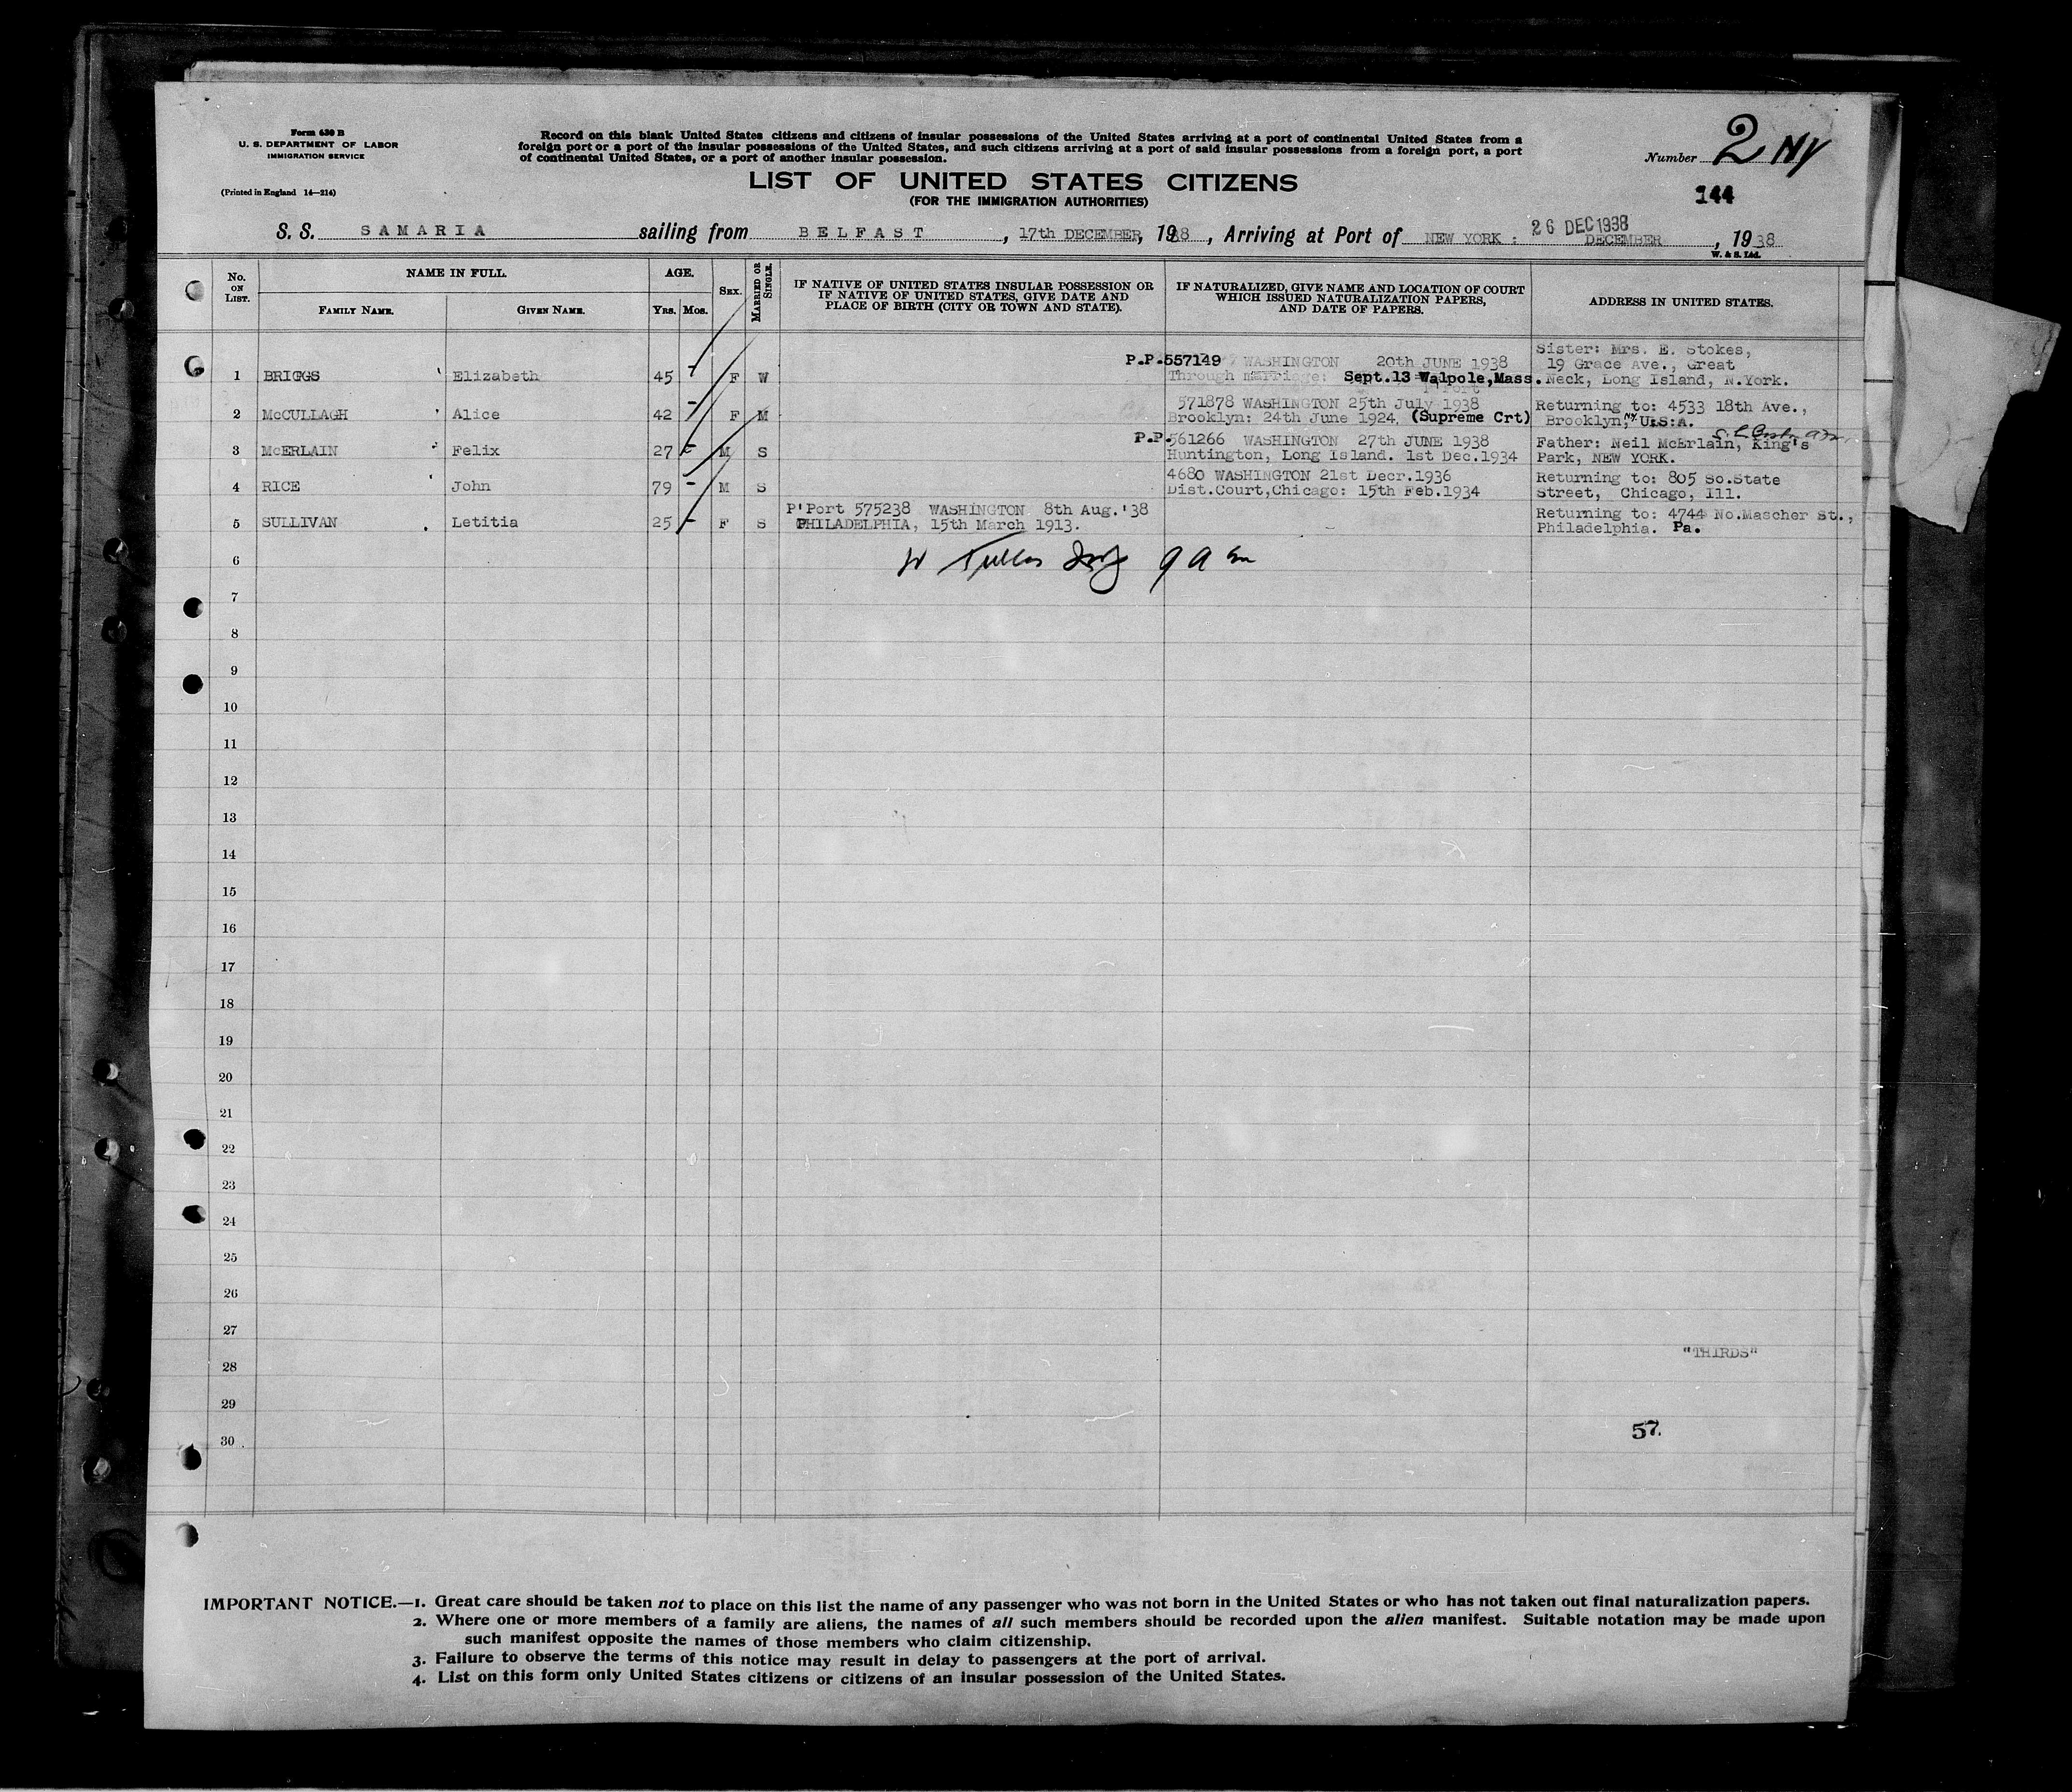 Form 630 B
U. S. DEPARTMENT OF LABOR
IMMIGRATION SERVICE
(Printed in England 14—214)
Record on this blank United States citizens and citizens of insular possessions of the United States arriving at a port of continental United States from a
foreign port or a port of the insular possessions of the United States, and such citizens arriving at a port of said insular possessions from a foreign port, a port
of continental United States, or a port of another insular possession.
Number 2 NY
144
LIST OF UNITED STATES CITIZENS
(FOR THE IMMIGRATION AUTHORITIES)
S. S. SAMARIA sailing from BELFAST, 17th DECEMBER, 1938, Arriving at Port of NEW YORK: 26 DEC 1938 DECEMBER, 1938
W. & S. Ltd.
No. ON LIST.
NAME IN FULL.
FAMILY NAME.
GIVEN NAME.
AGE.
YRS. MOS.
SEX.
MARRIED OR SINGLE.
IF NATIVE OF UNITED STATES INSULAR POSSESSION OR
IF NATIVE OF UNITED STATES, GIVE DATE AND
PLACE OF BIRTH (CITY OR TOWN AND STATE).
IF NATURALIZED, GIVE NAME AND LOCATION OF COURT
WHICH ISSUED NATURALIZATION PAPERS,
AND DATE OF PAPERS.
ADDRESS IN UNITED STATES.
P.P.557149 WASHINGTON 20th JUNE 1938 Sister: Mrs. E. Stokes,
19 Grace Ave., Great
1 BRIGGS Elizabeth 45 - F W Through marriage: Sept.13 Walpole,Mass. Neck, Long Island, N.York.
571878 WASHINGTON 25th July 1938 Returning to: 4533 18th Ave.,
2 McCULLAGH Alice 42 - F M Brooklyn: 24th June 1924. (Supreme Crt) Brooklyn, NY. U.S.A.
P.P.561266 WASHINGTON 27th JUNE 1938 Father: Neil McErlain, King's
3 McERLAIN Felix 27 - M S Huntington, Long Island. 1st Dec.1934 Park, NEW YORK.
4680 WASHINGTON 21st Decr.1936 Returning to: 805 So.State
4 RICE John 79 - M S Dist.Court,Chicago: 15th Feb.1934 Street, Chicago, Ill.
P'Port 575238 WASHINGTON 8th Aug.'38 Returning to: 4744 No.Mascher St.,
5 SULLIVAN Letitia 25 - F S PHILADELPHIA, 15th March 1913. - Philadelphia. Pa.
6
7
8
9
10
11
12
13
14
15
16
17
18
19
20
21
22
23
24
25
26
27
"THIRDS"
28
29
57.
30
IMPORTANT NOTICE.—1. Great care should be taken not to place on this list the name of any passenger who was not born in the United States or who has not taken out final naturalization papers.
2. Where one or more members of a family are aliens, the names of all such members should be recorded upon the alien manifest. Suitable notation may be made upon
such manifest opposite the names of those members who claim citizenship.
3. Failure to observe the terms of this notice may result in delay to passengers at the port of arrival.
4. List on this form only United States citizens or citizens of an insular possession of the United States.